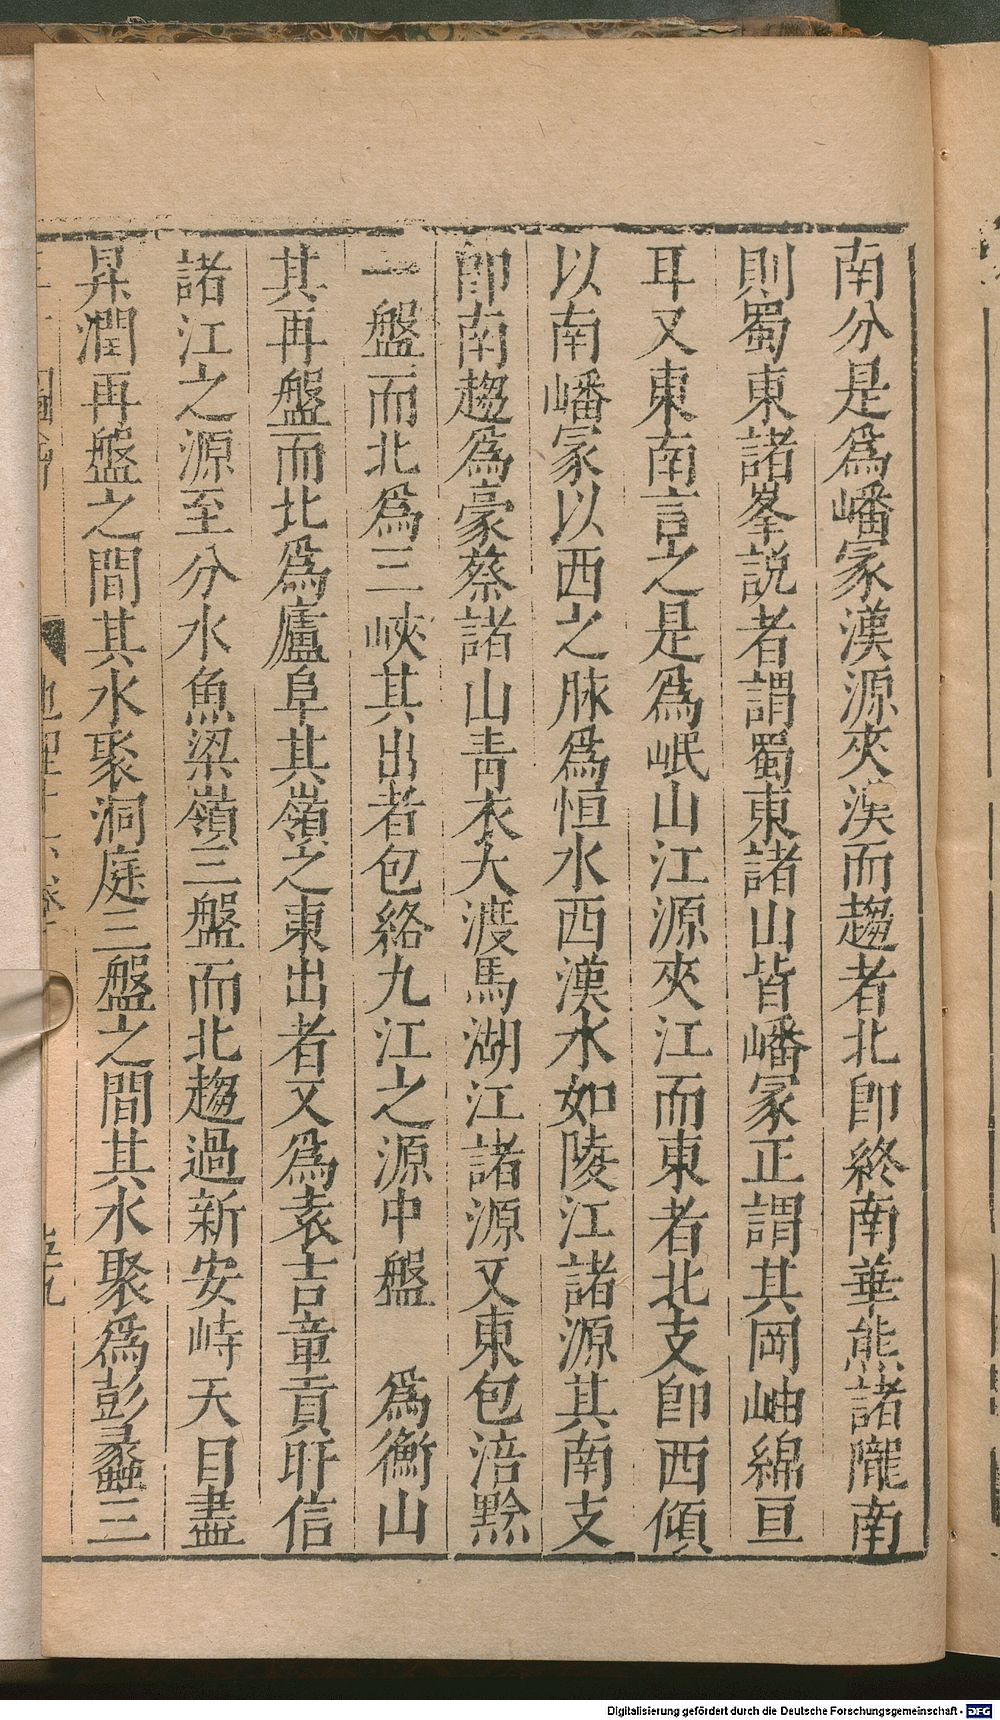 南分是爲嶓冢漢源夾漢而趨者北卽終南華熊諸隴南
則蜀東諸峯説者謂蜀東諸山皆嶓冢正謂其岡岫綿亘
耳又東南言之是爲岷山江源夾江而東者北支卽西傾
以南嶓冢以西之脉爲恒水西漢水如陵江諸源其南支
卽南趨爲豪蔡諸山青衣大渡馬湖江諸源又東包涪黔
一盤而北爲三峽其出者包絡九江之源中盤　爲衡山
其再盤而北爲廬阜其嶺之東出者又爲袁吉章貢盱信
諸江之源至分水魚梁嶺三盤而北趨過新安峙天目盡
昇潤再盤之間其水聚洞庭三盤之間其水聚爲彭蠡三
Digitalisierung gefördert durch die Deutsche Forschungsgemeinschaft - DFG